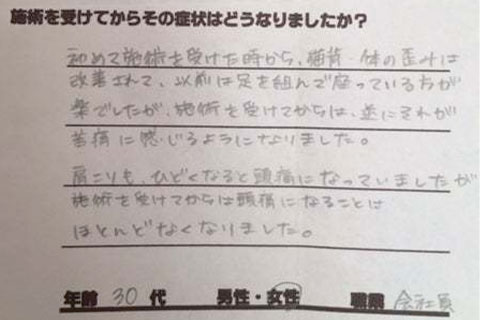 施術を受けてからその症状はどうなりましたか？
初めて施術を受けた時から、猫背・体の歪みは
改善されて、以前は足を組んで座っている方が
楽でしたが、施術を受けてからは、逆にそれが
苦痛に感じるようになりました。
肩こりも、ひどくなると頭痛になっていましたが
施術を受けてからは頭痛になることは
ほとんどなくなりました。
年齢 30 代 男性・女性 職業 会社員